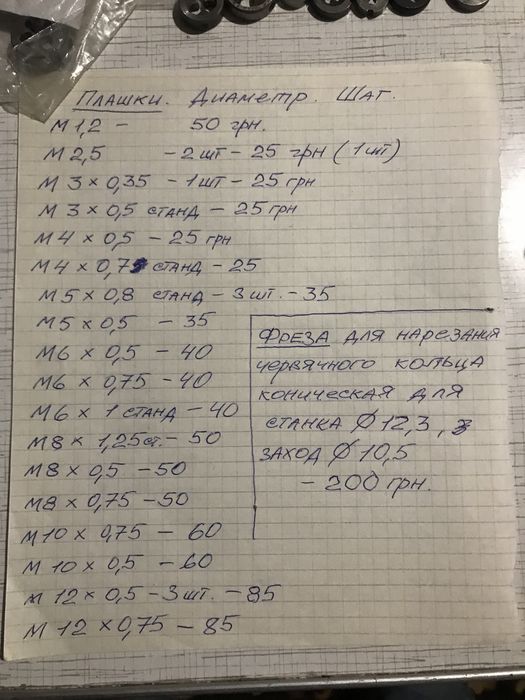 Плашки. Диаметр. Шаг.
М 1,2 - 50 грн.
М 2,5 - 2 шт - 25 грн (1 шт)
М 3 × 0,35 - 1 шт - 25 грн
М 3 × 0,5 станд - 25 грн
М 4 × 0,5 - 25 грн
М 4 × 0,7 станд - 25
М 5 × 0,8 станд - 3 шт. - 35
М 5 × 0,5 - 35
М 6 × 0,5 - 40
М 6 × 0,75 - 40
М 6 × 1 станд - 40
М 8 × 1,25 ст. - 50
М 8 × 0,5 - 50
М 8 × 0,75 - 50
М 10 × 0,75 - 60
М 10 × 0,5 - 60
М 12 × 0,5 - 3 шт. - 85
М 12 × 0,75 - 85
Фреза для нарезания
червячного кольца
коническая для
станка Ø 12,3,
заход Ø 10,5
- 200 грн.